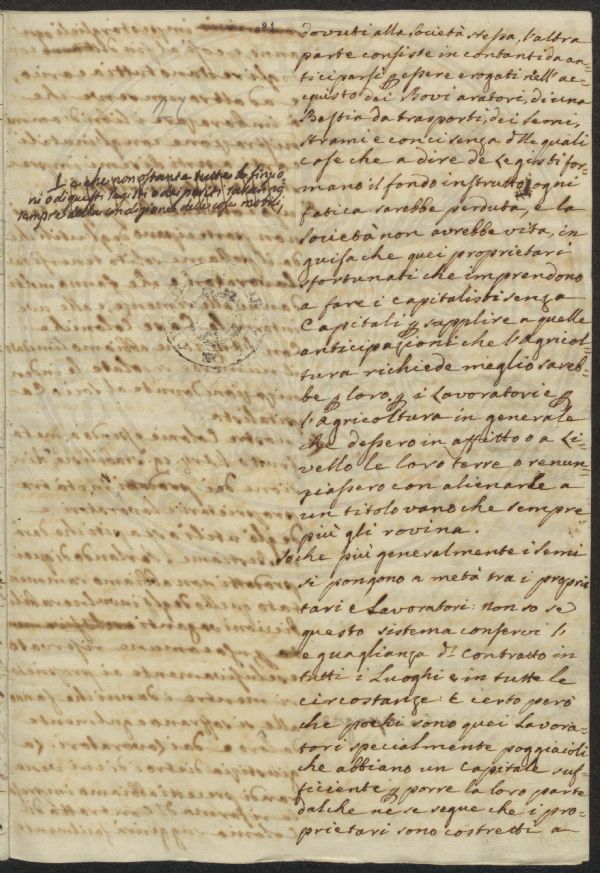 21
dovuti alla Società stessa, l'altra
parte consiste in contanti da an=
ticiparsi p essere erogati nell'ac=
quisto dei Bovi aratori, di una
Bestia da trasporti, dei semi,
strami e conci senza dlle quali
cose che a dire de Legisti for=
mano il fondo instrutto, ogni
fatica sarebbe perduta, e la
Società non avrebbe vita, in
guisa che quei proprietari
sfortunati che imprendono
a fare i Capitalisti senza
Capitali p supplire a quelle
anticipazioni che l'agricol=
tura richiede meglio sareb=
be p loro, p i Lavoratori e p
l'agricoltura in generale
che dessero in affitto o a Li=
vello le loro terre o renun=
ziassero con alienarle a
un titolo vano che sempre
più gli rovina.
So che più generalmente i semi
si pongono a metà tra i proprie
tari e Lavoratori: non so se
questo sistema conservi l'
eguaglianza dl Contratto in
tutti i Luoghi e in tutte le
circostanze: È certo però
che pochi sono quei Lavora=
tori specialmente poggiaioli
che abbiano un Capitale suf=
ficiente p porre la loro parte
dal che ne se segue che i pro=
prietari sono costretti a
e che non ostante tutte le finzio
ni o di questi Legisti o dei periti saranno
sempre della condizione delle cose mobili,